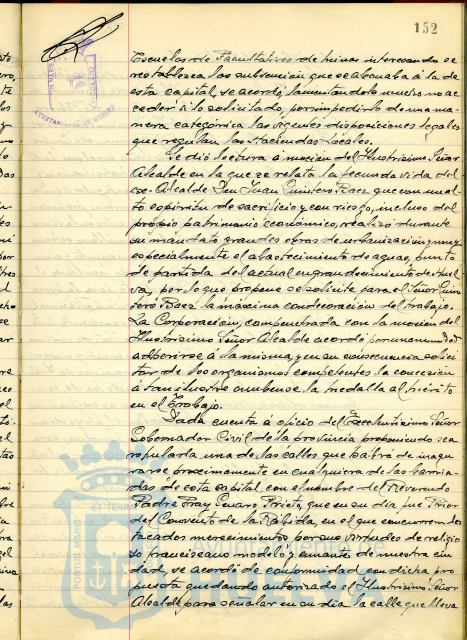 152
Escuelas de Facultativos de minas interesando se
restablezca la subvención que se abonaba á la de
esta capital, se acordó, lamentándolo mucho no ac
ceder á lo solicitado, por impedirlo de una ma
nera categórica las vigentes disposiciones legales
que regulan las Haciendas Locales.
Se dió lectura á moción del Ilustrísimo Señor
Alcalde en la que se relata la fecunda vida del
ex-Alcalde Don Juan Quintero Baez que con un al
to espíritu de sacrificio y con riesgo, incluso del
propio patrimonio económico, realizó durante
su mandato grandes obras de urbanización y muy
especialmente el abastecimiento de aguas, punto
de partida del actual engrandecimiento de Huel
va, por lo que propone se solicite para el Señor Quin
tero Baez la máxima condecoración del trabajo.
La Corporación, compenetrada con la moción del
Ilustrísimo Señor Alcalde acordó por unanimidad
adherirse á la misma y en su consecuencia solici
tar de los organismos competentes la concesión
á tan ilustre onubense la medalla al mérito
en el Trabajo.
Dada cuenta á oficio del Excelentísimo Señor
Gobernador Civil de la provincia proponiendo sea
rotulada una de las calles que habrá de inagu
rarse proximamente en cualquiera de las barria
das de esta capital con el nombre del Reverendo
Padre Fray Genaro Prieto, que en su día fué Prior
del Convento de la Rábida, en el que concurren des
tacados merecimientos por sus virtudes de religio
so franciscano modelo y amante de nuestra ciu
dad, se acordó de conformidad con dicha pro
puesta quedando autorizado el Ilustrísimo Señor
Alcalde para señalar en su día la calle que lleva